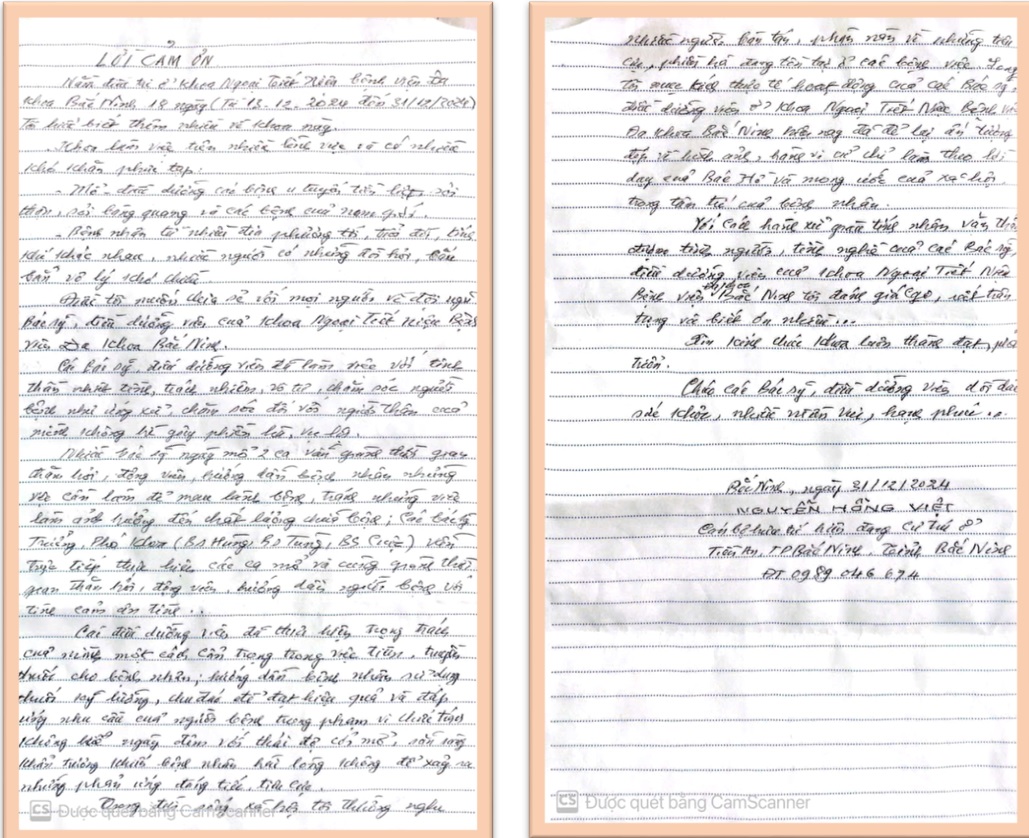 LỜI CẢM ƠN
Nằm điều trị ở Khoa Ngoại Tiết Niệu bệnh viện Đa
Khoa Bắc Ninh 18 ngày (Từ 13.12.2024 đến 31/12/2024)
Tôi hiểu biết thêm nhiều về khoa này.
Khoa làm việc trên nhiều lĩnh vực và có nhiều
khó khăn phức tạp.
- Mổ - điều dưỡng các bệnh u tuyến tiền liệt, sỏi
thận, sỏi bàng quang và các bệnh của nam giới.
- Bệnh nhân từ nhiều địa phương tới, trái đổi, tính
khí khác nhau, nhiều người có những đòi hỏi, cằn
vô lý khó chiều.
tôi muốn chia sẻ với mọi người về đội ngũ
Bác sỹ, điều dưỡng viên của Khoa Ngoại Tiết Niệu Bệnh
viện Đa Khoa Bắc Ninh.
Các bác sỹ, điều dưỡng viên đã làm việc với tinh
thần nhiệt tình, trách nhiệm, vô tư, chăm sóc người
bệnh như ứng xử, chăm sóc đối với người thân của
mình không hề gây phiền hà, vụ lợi.
Nhiều bác sỹ ngày mổ 2 ca vẫn giành thời gian
thăm hỏi, động viên, hướng dẫn bệnh nhân những
việc cần làm để mau lành bệnh, tránh những việc
làm ảnh hưởng đến chất lượng chữa bệnh; Các bác sỹ
Trưởng, Phó Khoa (BS Hùng, BS Tùng, BS Cược) vẫn
trực tiếp thực hiện các ca mổ và cũng giành thời
gian thăm hỏi, động viên, hướng dẫn người bệnh với
tình cảm ân tình..
Các điều dưỡng viên đã thực hiện trọng trách
của mình một cách cẩn trọng trong việc tiêm, truyền
thuốc cho bệnh nhân; hướng dẫn bệnh nhân sử dụng
thuốc kỹ lưỡng, chu đáo để đạt hiệu quả và đáp
ứng nhu cầu của người bệnh trong phạm vi chức trách
không kể ngày đêm với thái độ cởi mở, sẵn sàng
khẩn trương khiến bệnh nhân hài lòng không để xảy ra
những phản ứng đáng tiếc, tiêu cực.
Trong đời sống xã hội tôi thường nghe
nhiều người bàn tán, phàn nàn về những tiêu
cực, phiền hà đang tồn tại ở các bệnh viện. Song
tôi mục kích thực tế hoạt động của các Bác sỹ,
điều dưỡng viên ở Khoa Ngoại Tiết Niệu Bệnh viện
Đa Khoa Bắc Ninh hiện nay đã để lại ấn tượng
đẹp về hình ảnh, hành vi cử chỉ làm theo lời
dạy của Bác Hồ và mong ước của xã hội
trong tâm tư của bệnh nhân.
Với cách hành xử giàu tính nhân văn
tình người, tình nghề của các Bác sỹ,
điều dưỡng viên của Khoa Ngoại Tiết Niệu
Bệnh viện Đa Khoa Bắc Ninh tôi đánh giá cao, rất trân
trọng và biết ơn nhiều...
Xin kính chúc Khoa luôn thành đạt, phát
triển.
Chúc các Bác sỹ, điều dưỡng viên dồi dào
sức khỏe, nhiều niềm vui, hạnh phúc..
Bắc Ninh, ngày 31/12/2024
NGUYỄN HỒNG VIỆT
Cán bộ hưu trí hiện đang cư trú ở
Tiền An, TP Bắc Ninh, tỉnh Bắc Ninh
ĐT 0989 046 674
CS Được quét bằng CamScanner
CS Được quét bằng CamScanner